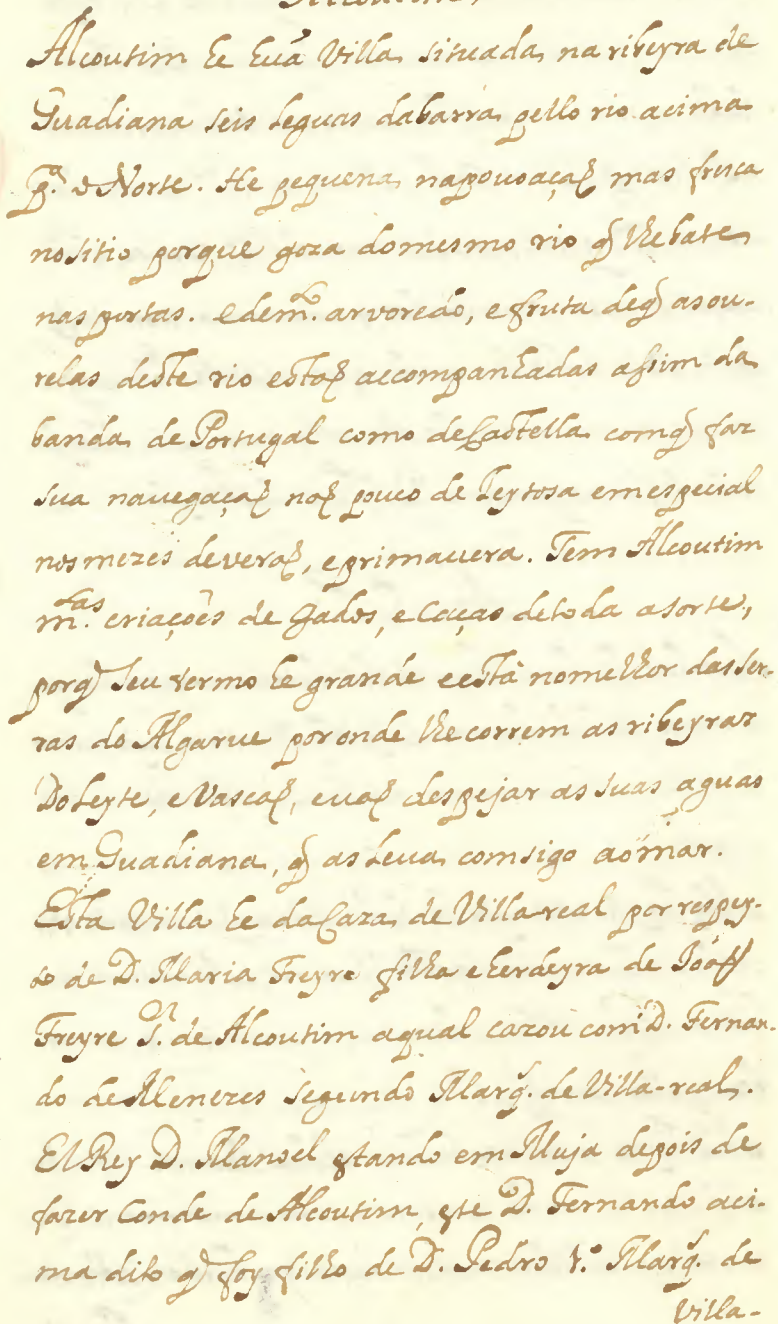 Alcoutim.
Alcoutim he huã Villa situada na ribeyra de
Guadiana seis leguas dabarra pello rio acima
p.ª o Norte. He pequena napouoaçaõ mas fresca
nositio porque goza domesmo rio q̃ lhebate
nas portas. edem.to arvoredo, efruta deq̃ asou-
relas deste rio estaõ accompanhadas assim da
banda de Portugal como deCastella comq̃ faz
sua nauegaçaõ naõ pouco deleytosa emespecial
nosmezes deveraõ, eprimauera. Tem Alcoutim
m.tas criações de gados, eCaças detoda asorte,
porq̃ seu termo he grande eestà nomelhor dasSer-
ras do Algarue poronde lhecorrem asribeyras
Doleyte, eVascaõ, euaõ despejar as suas aguas
em Guadiana, q̃ as leua comsigo aomar.
Esta Villa he daCaza de Villa-real por respey-
to de D. Maria Freyre filha eherdeyra de Joaõ
Freyre S.or de Alcoutim aqual cazou com D. Fernan-
do deMenezes segundo Marq̃. de Villa-real.
ElRey D. Manoel estando em Muja depois de
fazer Conde de Alcoutim, este D. Fernando aci-
ma dito q̃ foy filho de D. Pedro 1.º Marq̃. de
Villa-